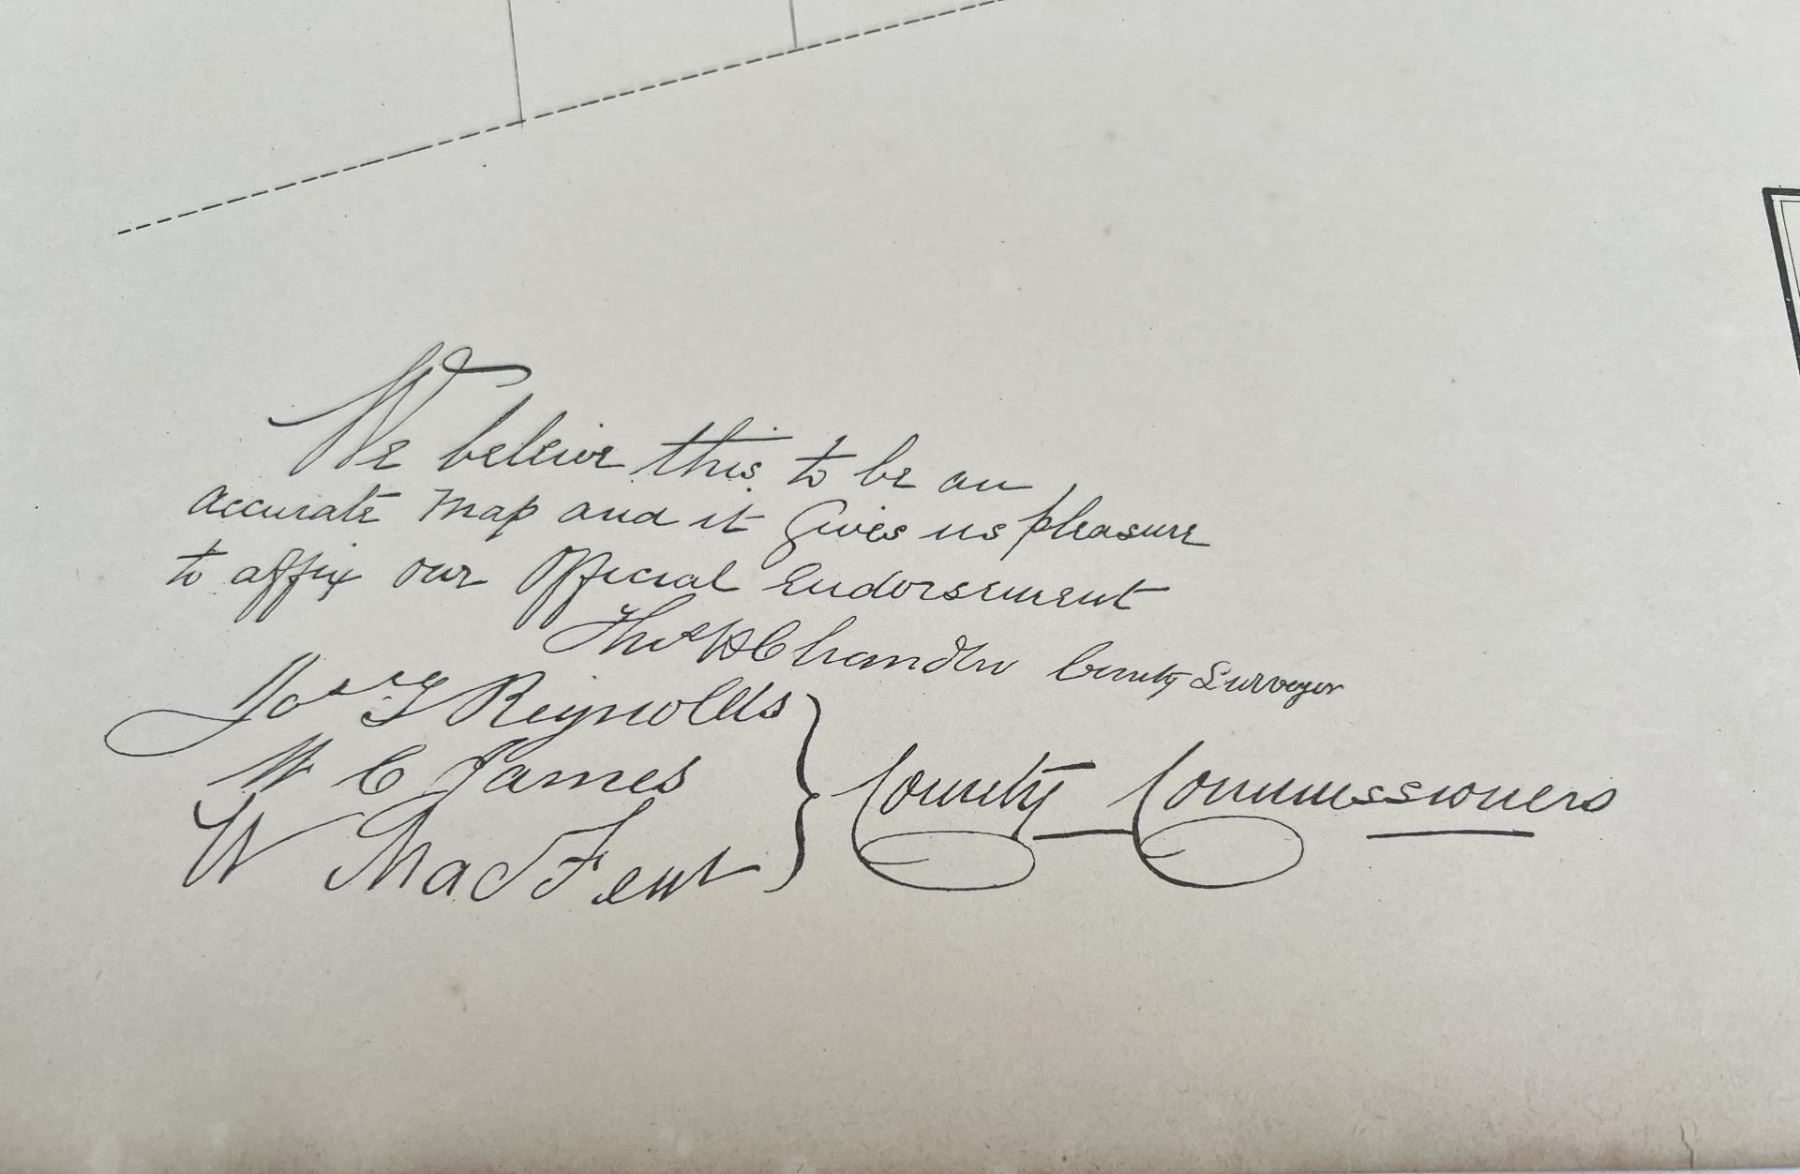 We beleive this to be an
accurate Map and it Gives us pleasure
to affix our Official Endorsement
Thos H Chandler County Surveyor
Jas T Reynolds
W C James
W Mac
County Commissioners